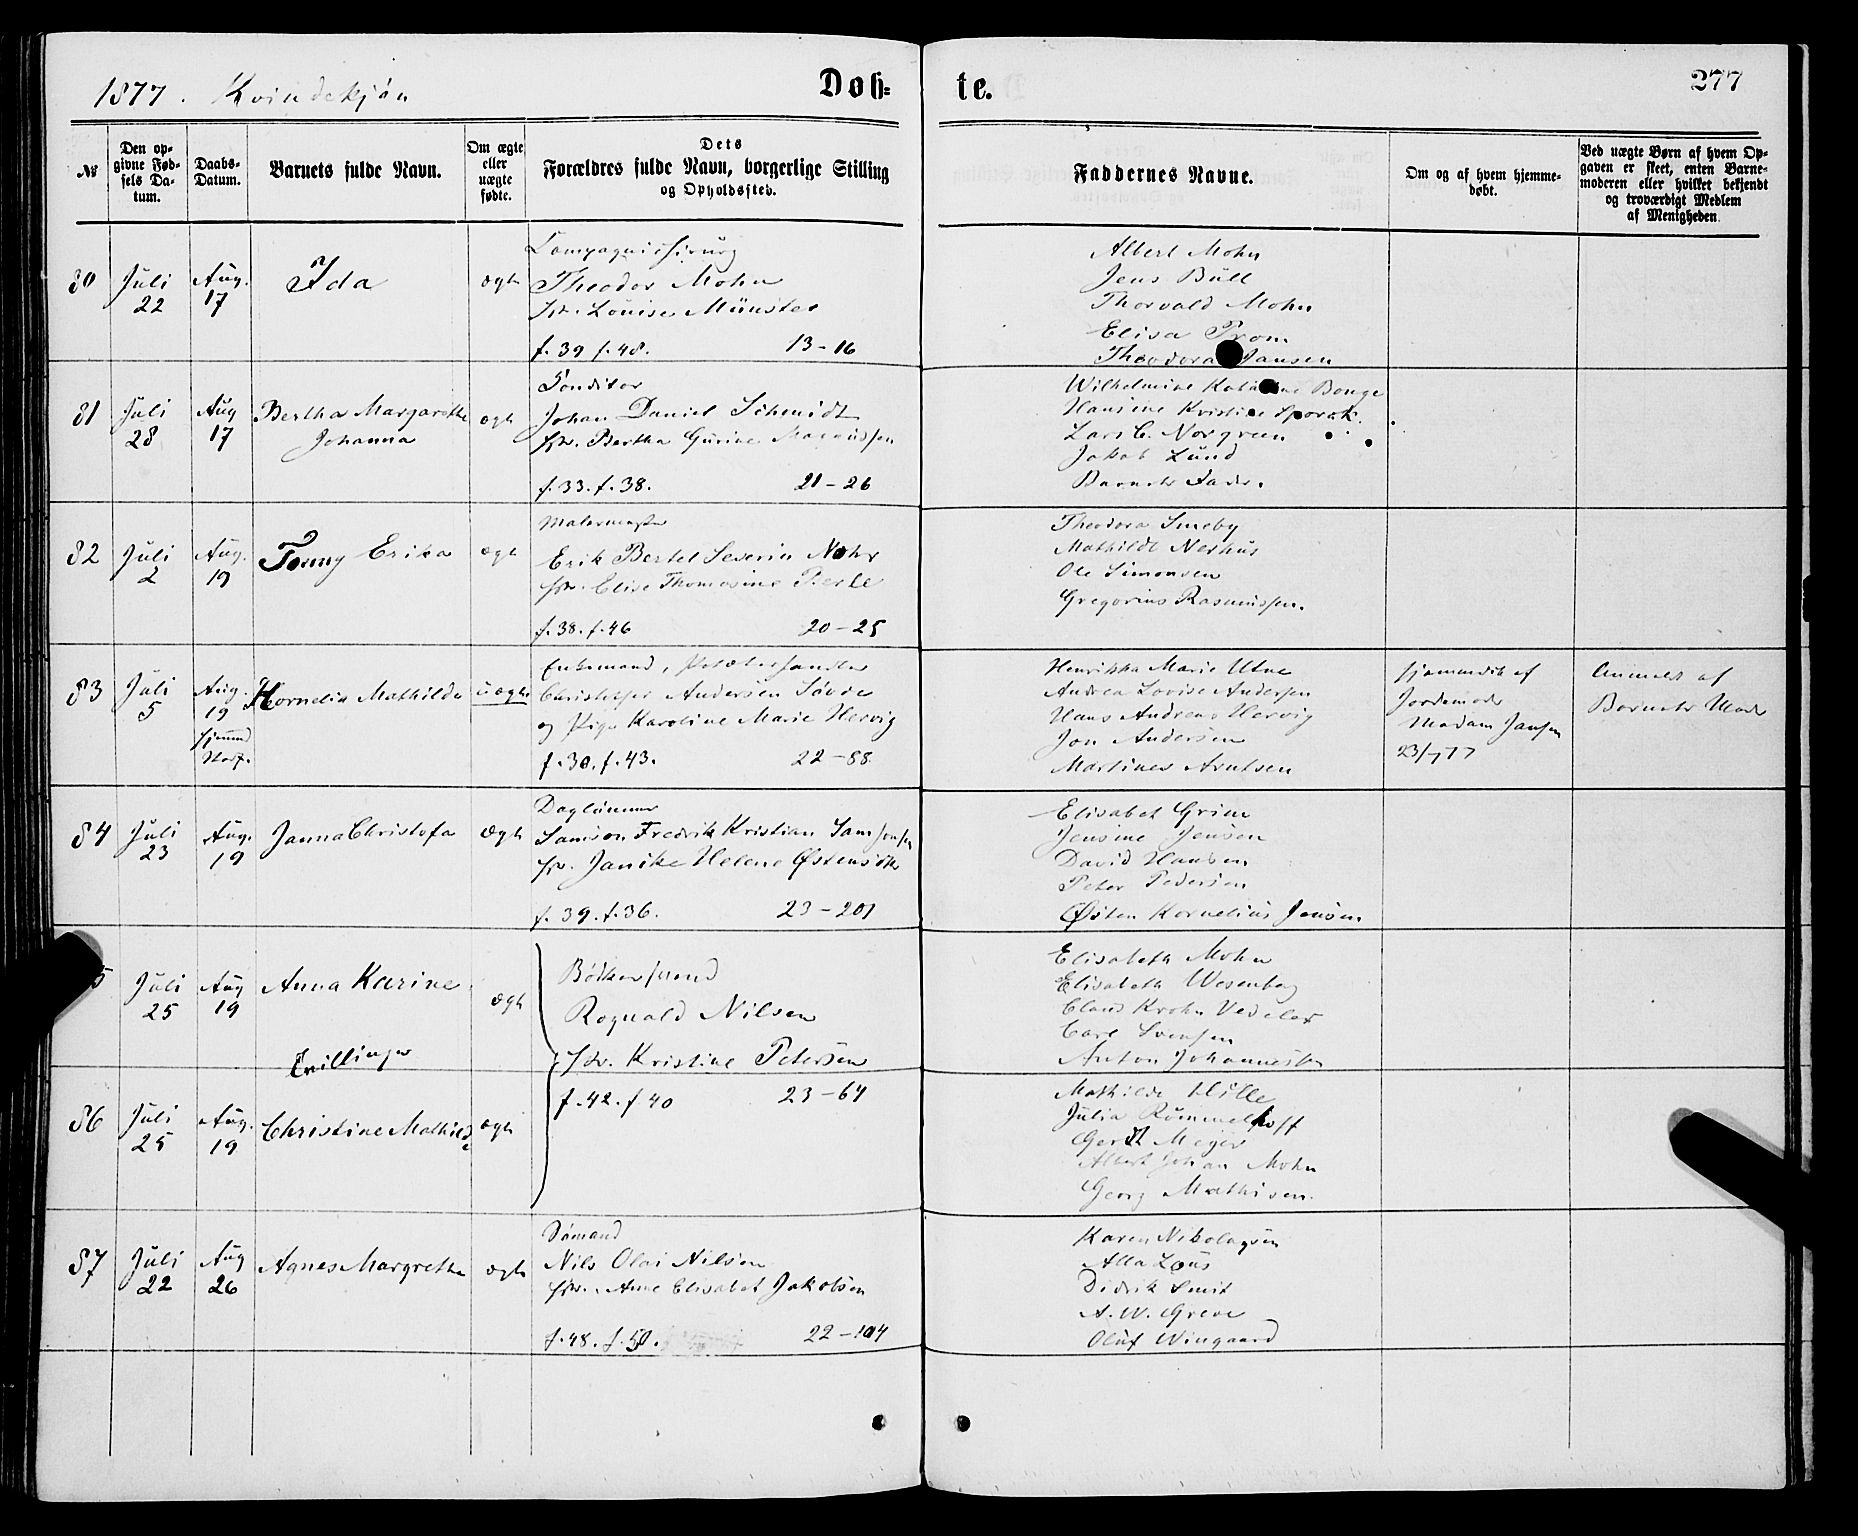 1877. Kvindekjön
Døb-
te.
277
№
Den op-
givne Fød-
sels Da-
tum.
Daabs-
Datum.
Barnets fulde Navn.
Om ægte
eller
uægte
fødte.
Dets
Forældres fulde Navn, borgerlige Stilling
og Opholdssted.
Faddernes Navne.
Om og af hvem hjemme-
døbt.
Ved uægte Børn af hvem Op-
gaven er skeet, enten Barne-
moderen eller hvilket bekjendt
og troværdigt Medlem
af Menigheden.
80
Juli
22
Aug.
17
Ida
ægte
Compagnichirurg
Theodor Mohn
Louise Münster
f. 39 f. 48. 13-16
Albert Mohn
Jens Bull
Thorvald Mohn
Elisa Prom
Theodora Jansen
81
Juli
28
Aug
17
Bertha Margarethe
Johanna
ægte
Conditor
Johan Daniel Schmidt
Bertha Gurine Magnussen
f. 33. f. 38. 21-26
Wilhelmine Bonge
Hansine Kristine
Lars C. Norgreen
Jakob Lund
Barnets Fader.
82
Juli
2
Aug.
19
Erika
ægte
Malermester
Erik Bertel Severin Nohr
Elise Thomasine
f. 38. f. 46 20-25
Theodora Smeby
Mathilde Nerhus
Ole Simonsen
Gregorius Rasmussen.
83
Juli
5
Aug.
19
hjemmed
Kornelia Mathilde
uægte
Enkemand,
Christopher Andersen
og Pige Karoline Marie Hervig
f. 30. f. 43. 22-88
Henrikka Marie Utne
Andrea Lovise Andersen
Hans Andreas Hervig
Jon Andersen
Martines Arntsen
hjemmedöbt af
Jordemoder
Madam Jansen
23/7 77
Anmeldt af
Barnets Moder
84
Juli
23
Aug.
19
Janna Christofa
ægte
Daglønner
Samson Fredrik Kristian Samsonsen
Janike Helene
f. 39. f. 36. 23-201
Elisabet Grim
Jensine Jensen
David Hansen
Peter Pedersen
Østen Kornelius Jensen
5
Juli
25
Aug
19
Anna Karine
Tvillinger
ægte
Bödkersvend
Rognald Nilsen
Kristine Petersen
f. 42. f 40 23-64
Elisabeth Mohn
Elisabeth Wesenberg
Claus Krohn Vedeler
Carl Svensen
Anton Johannesen
86
Juli
25
Aug.
19
Christine Mathilde
ægte
Mathilde Hille
Julia Rommelhoff
Gerdt Meyer
Albert Johan Mohn
Georg Mathisen.
87
Juli
22
Aug
26
Agnes Margrethe
ægte
Sömand
Nils Olai Nilsen
Anne Elisabet Jakobsen
f. 48. f. 50. 22-104
Karen Nikolaysen
Alla Lous
Didrik Smit
A. W. Greve
Oluf Wingaard